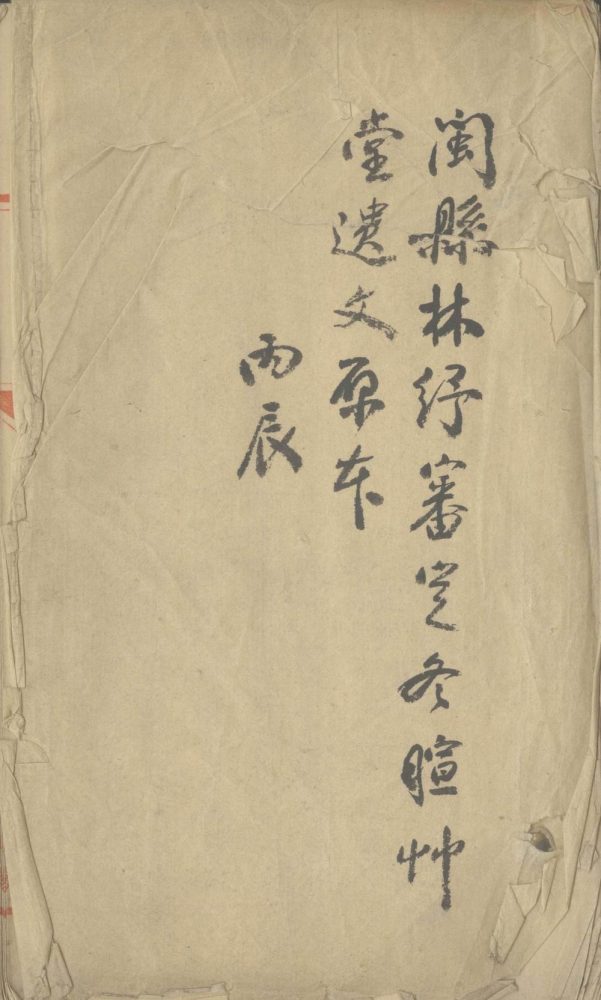 閩縣林紓審定冬暄艸
堂遺文原本
丙辰